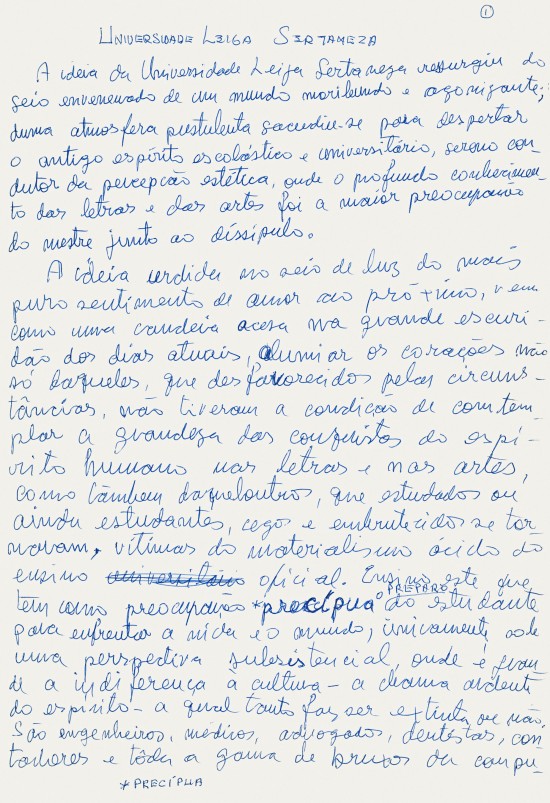 ①
UNIVERSIDADE LEIGA SERTANEZA
A ideia da Universidade Leiga Sertaneza ressurgiu do
seio envenenado de um mundo moribundo e agonizante;
duma atmosfera pustulenta sacudiu-se para despertar
o antigo espírito escolástico e universitário, sereno con
dutor da percepção estética, onde o profundo conhecimen-
to das letras e das artes foi a maior preocupação
do mestre junto ao díssipulo.
A ideia urdida no seio de luz do mais
puro sentimento de amor ao próximo, vem
como uma candeia acesa na grande escuri-
dão dos dias atuais, alumiar os corações não
só daqueles, que desfavorecidos pelas circuns-
tâncias, não tiveram a condição de contem-
plar a grandeza das conquistas do espí-
rito humano nas letras e nas artes,
como também daqueloutros, que estudados ou
ainda estudantes, cegos e embrutecidos se tor
navam, vítimas do materialismo ácido do
ensino universitário oficial. Ensino este que
tem como preocupação *precípua o PREPARO do estudante
para enfrentar a vida e o mundo, únicamente sob
uma perspectiva subsistencial, onde é gran-
de a indiferença à cultura - a chama ardente
do espírito - a qual tanto faz ser extinta ou não.
São engenheiros, médicos, advogados, dentistas, con
tadores e tôda a gama de bruxos da compu-
*PRECÍPUA